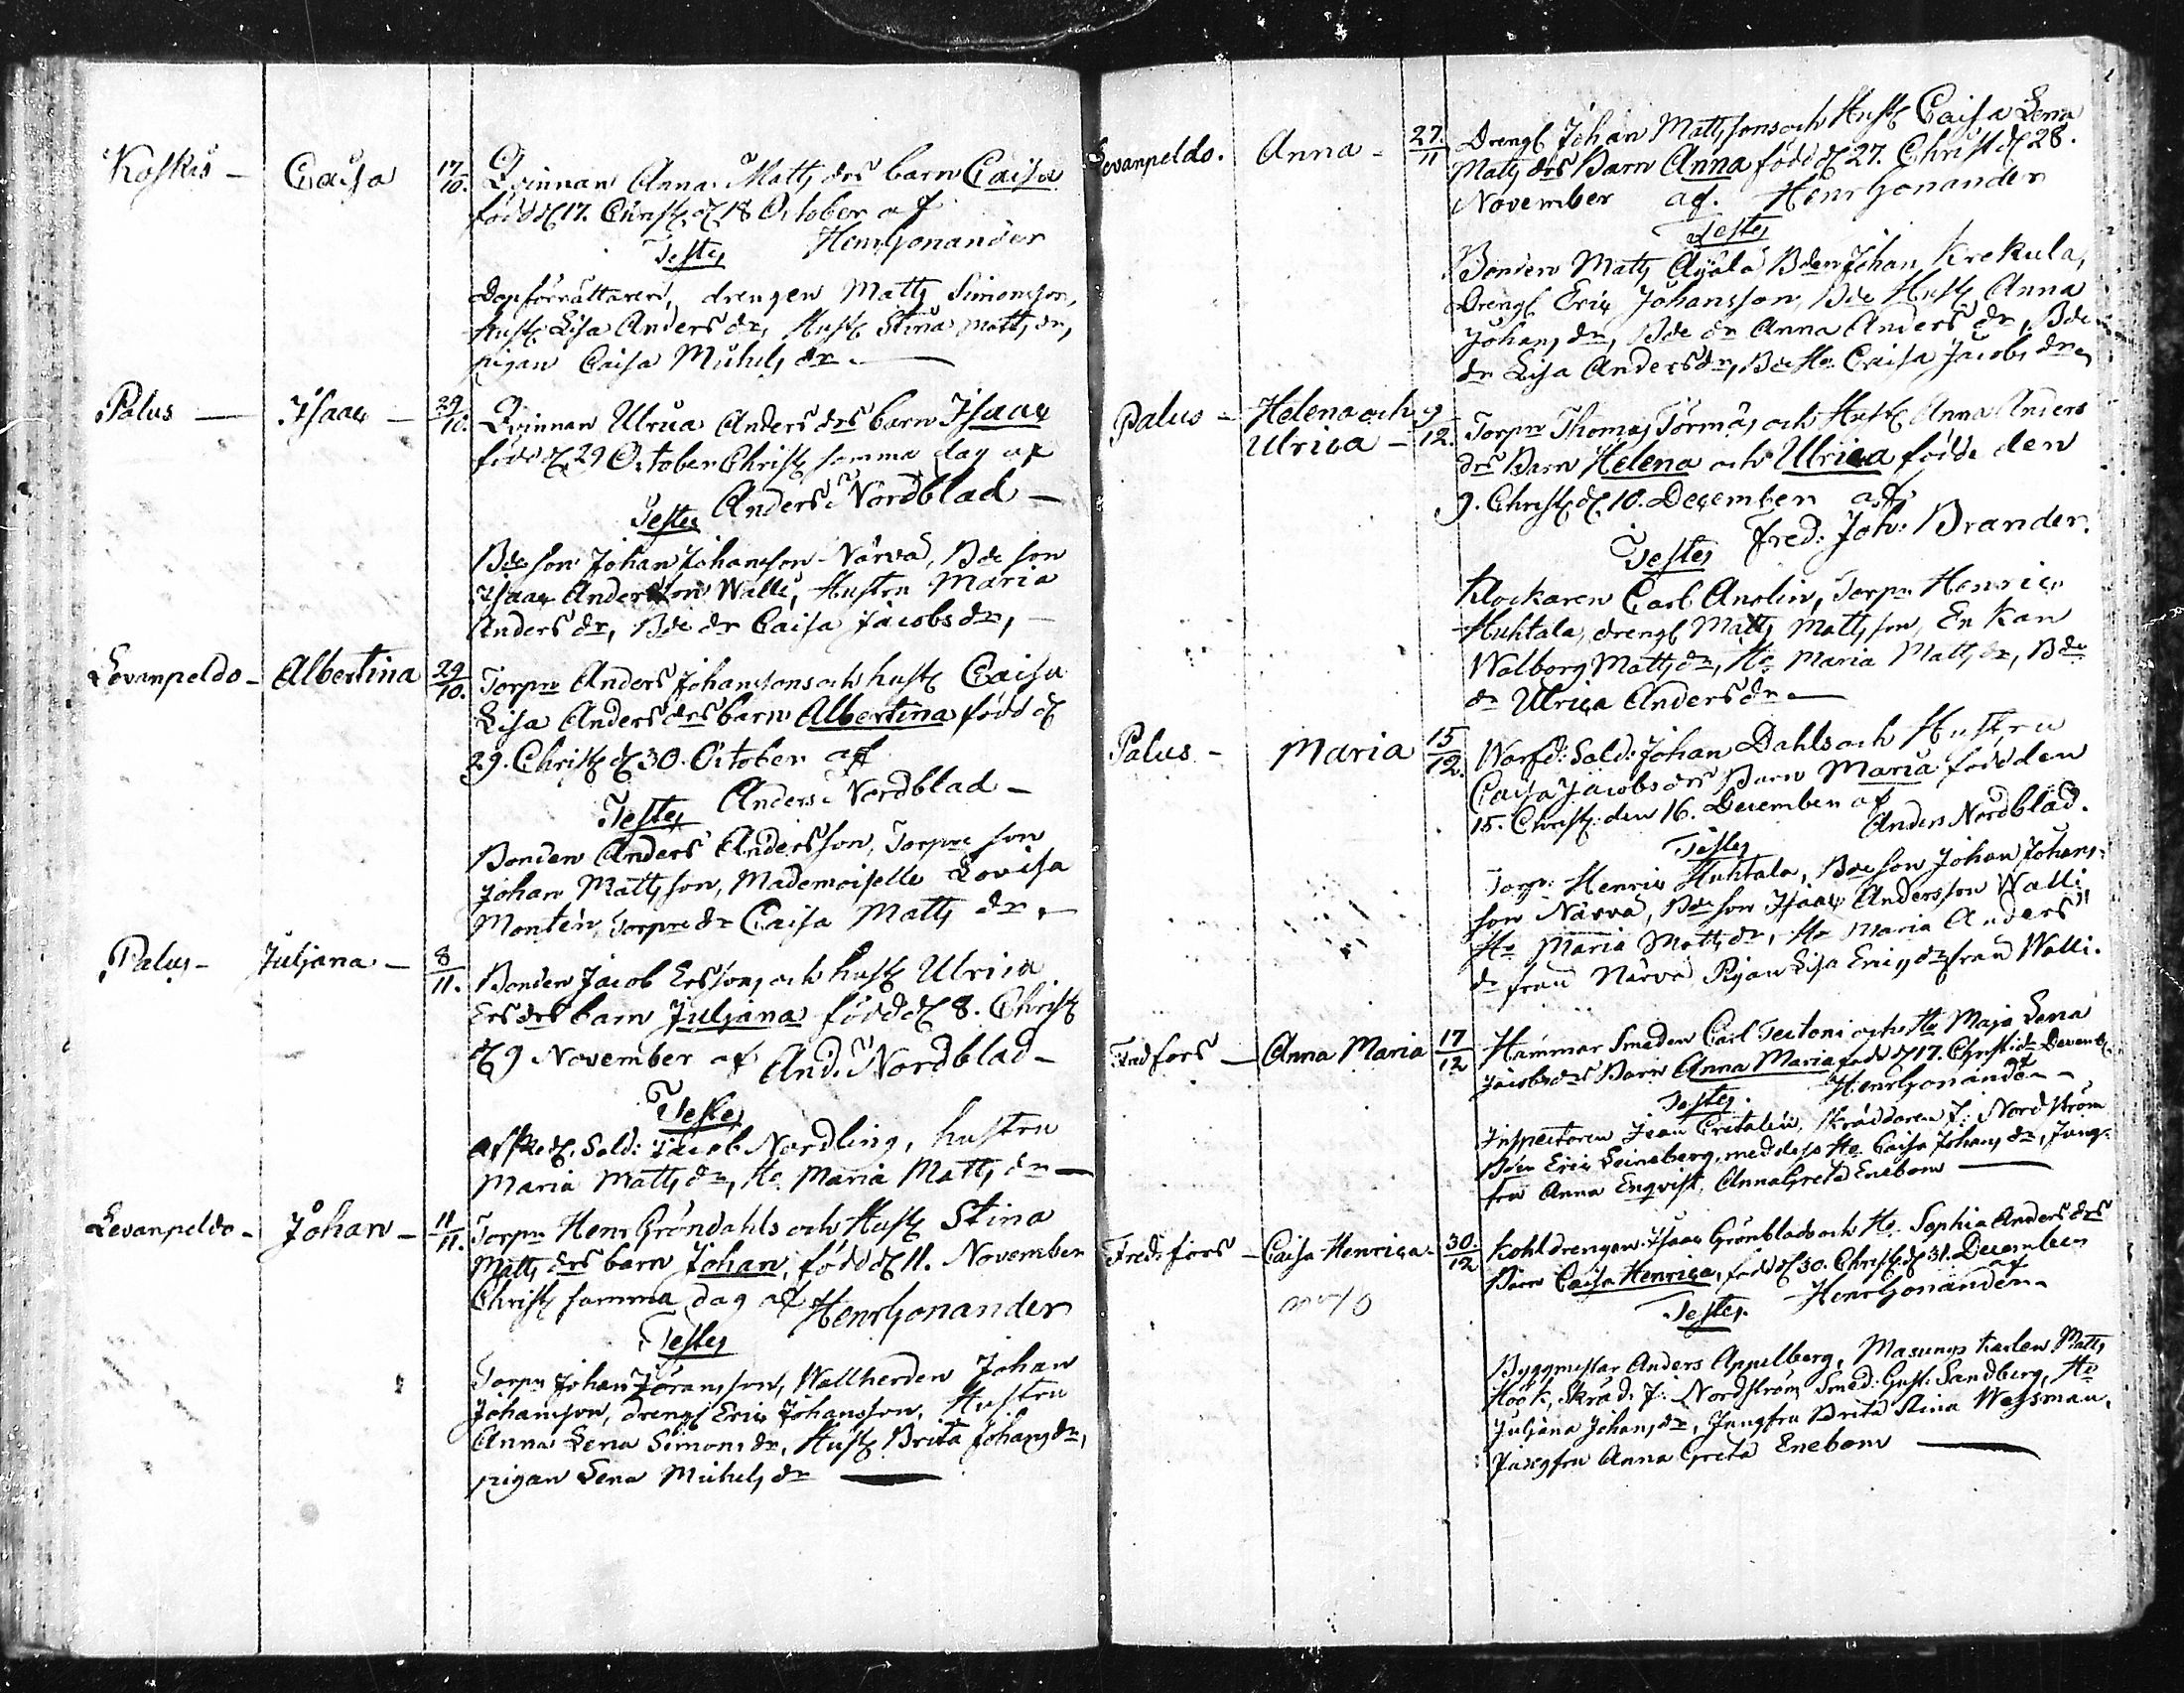 Koskis - Caisa 17/10. Qvinnan Anna Matts drs barn Caisa
född d 17. Christ d 18 October af
Testes HenrGonander
Dopförrättaren, drengen Matts Simonsson,
Hust Lisa Anders dr, Hust Stina Matts dr,
pigan Caisa Michels dr.
Palus - Isaac - 29/10. Qvinnan Ulrica Anders drs barn Isaac
född d. 29 October Christ samma dag af
Testes Anders Nordblad -
Bde son Johan Johansson Närvä, Bde son
Isaac Andersson Walli, Hustru Maria
Anders dr, Bde dr Caisa Jacobs dr, -
Levanpeldo - Albertina 29/10. Torpn Anders Johanssons och hust Caisa
Lisa Anders drs barn Albertina född d
29. Christ d 30. October af
Testes Anders Nordblad -
Bonden Anders Andersson, Torpre son
Johan Mattsson, Mademoiselle Lovisa
Montén, Torpre dr Caisa Matts dr. -
Palus - Juljana - 8/11. Bonden Jacob Erssons och hust Ulrica
Ers drs barn Juljana född d 8. Christ
d 9 November af And. Nordblad -
Testes
Afsked. Sold: Jacob Nordling, hustru
Maria Matts dr, Ho Maria Matts dr -
Levanpeldo - Johan - 11/11. Torpn Henr Gröndahls och Hust Stina
Matts drs barn Johan, född d 11. November
Christ samma dag af HenrGonander
Testes
Torpn Johan Göransson, Wallherden Johan
Johansson, dreng Eric Johansson, Hustru
Anna Lena Simons dr, Hust Brita Johans dr,
pigan Lena Michels dr -
Levanpeldo. Anna - 27/11 Dreng Johan Mattssons och Hust Caisa Lena
Matts drs Barn Anna född d 27. Christ d 28.
November af. HenrGonander
Testes
Bonden Matts Äijälä Bden Johan Krekula,
Dreng Eric Johansson, Bde Hust Anna
Johans dr, Bde dr Anna Anders dr, Bde
dr Lisa Anders dr, Bde Ho Caisa Jacobs dr
Palus - Helena och Ulrica - 9/12. Torpn Thomas Törmäs och Hust Anna Anders
drs Barn Helena och Ulrica födde den
9. Christ d 10. December af
Testes Fred: Joh: Brander.
Klockaren Carl Anolin, Torpn Henric
Huhtala, dreng Matts Mattsson, Enkan
Walborg Matts dr, Ho Maria Matts dr, Bde
dr Ulrica Anders dr -
Palus - Maria 15/12. Warfd: Sold: Johan Dahls och Hustru
Caisa Jacobs drs Barn Maria född den
15. Christ: den 16. December af
Testes Anders Nordblad.
Torp: Henric Huhtala, Bde son Johan Johans-
son Närvä, Bde son Isaac Andersson Walli
Ho Maria Matts dr, Ho Maria Anders
dr från Närvä Pigan Lisa Erics dr från Walli.
Fredfors - Anna Maria 17/12 Hammar Smeden Carl Tectoni och Ho Maja Lena
Jacobs drs Barn Anna Maria född d 17. Christ: d. Decemb. af
Testes. HenrGonander -
Inspectoren Jean Cretalin, Skräddaren J: Nordström
Bden Eric Leineberg, med dess Ho Caisa Johans dr, Jung-
fru Anna Enqvist, Anna Greta Enebom -
Fredsfors - Caisa Henrica - 30./12 Kohldrengen Isaac Grönblads och Ho Sophia Anders drs
Barn Caisa Henrica, född d 30. Christ: d 31. December af
Testes. HenrGonander -
Byggmästar Anders Appelberg, Masungs Karlen Matts
Höök, Skräd. J: Nordström, Smed: Gust: Sandberg, Ho
Juljana Johans dr, Jungfru Brita Stina Wessman,
Jungfru Anna Greta Enebom -